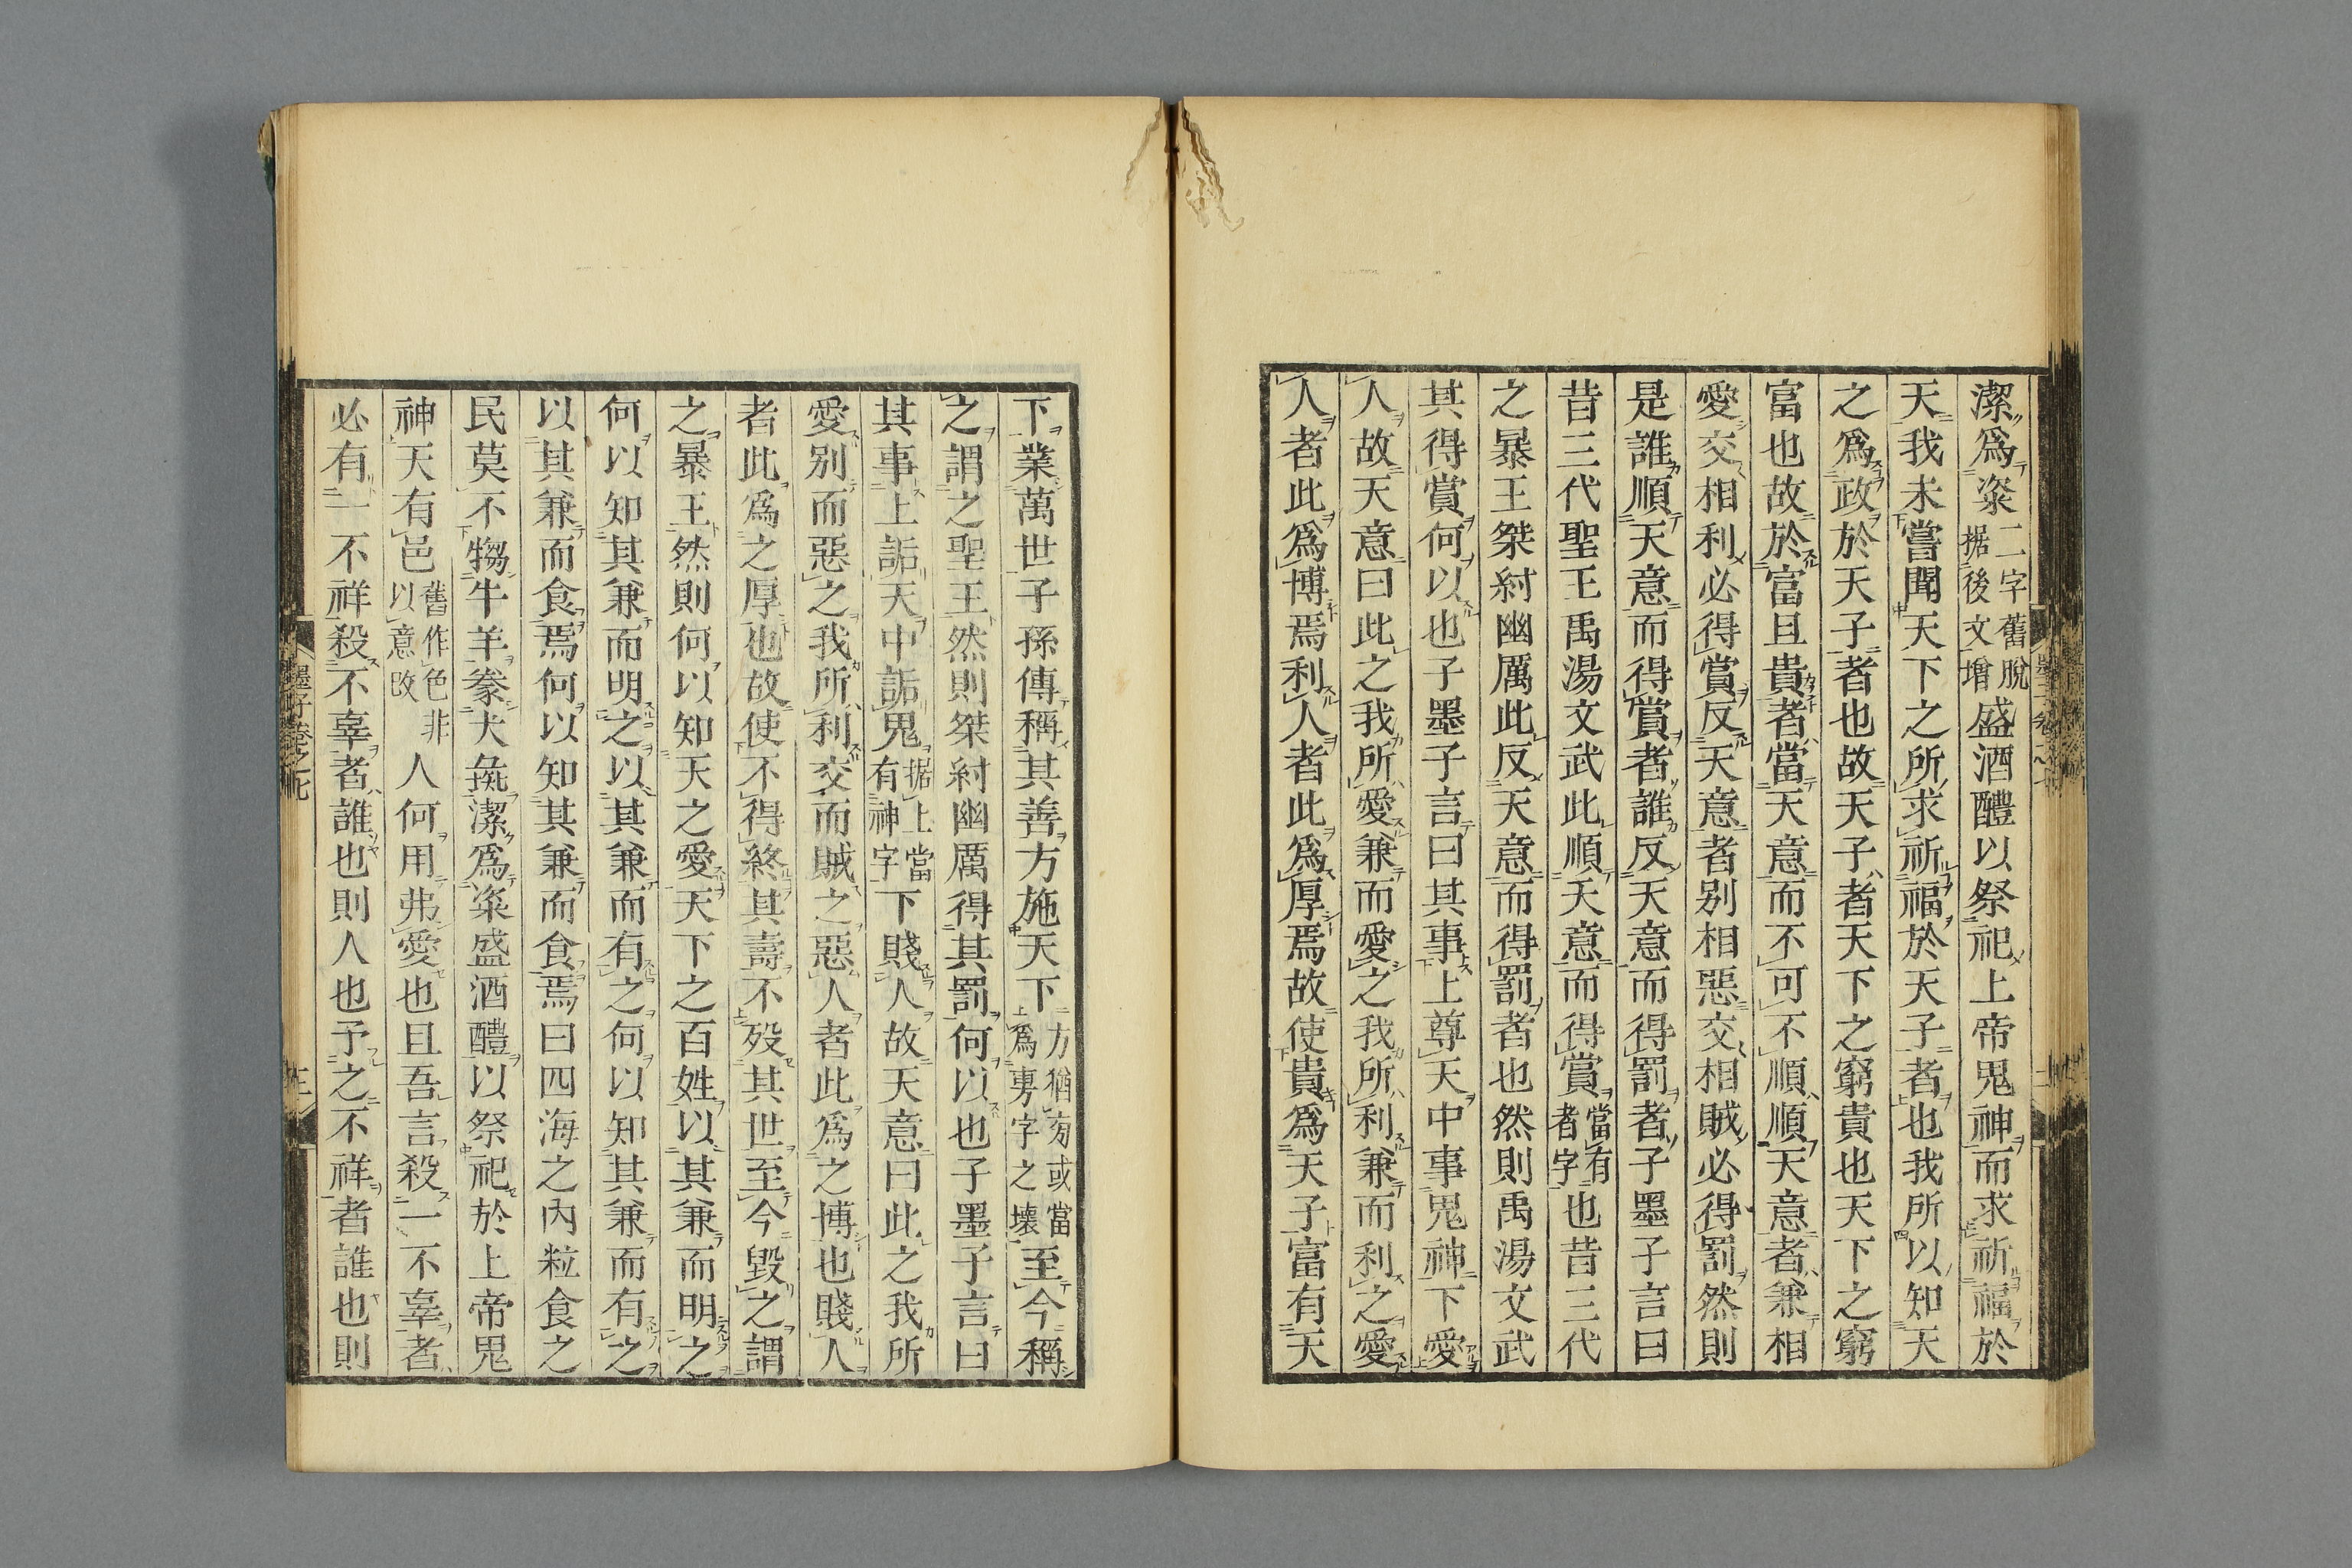 潔爲粢二字舊脫据後文增盛酒醴以祭祀上帝鬼神而求祈福於
天我未嘗聞天下之所求祈福於天子者也我所以知天
之爲政於天子者也故天子者天下之窮貴也天下之窮
富也故於富且貴者當天意而不可不順順天意者兼相
愛交相利必得賞反天意者别相惡交相賊必得罰然則
是誰順天意而得賞者誰反天意而得罰者子墨子言曰
昔三代聖王禹湯文武此順天意而得賞當有者字也昔三代
之暴王桀紂幽厲此反天意而得罰者也然則禹湯文武
其得賞何以也子墨子言曰其事上尊天中事鬼神下愛
人故天意曰此之我所愛兼而愛之我所利兼而利之愛
人者此爲博焉利人者此爲厚焉故使貴爲天子富有天
下業萬世子孫傳稱其善方施天下方猶旁或當爲旉字之壞至今稱
之謂之聖王然則桀紂幽厲得其罰何以也子墨子言曰
其事上詬天中詬鬼据上當有神字下賤人故天意曰此之我所
愛别而惡之我所利交而賊之惡人者此爲之博也賤人
者此爲之厚也故使不得終其壽不歿其世至今毀之謂
之暴王然則何以知天之愛天下之百姓以其兼而明之
何以知其兼而明之以其兼而有之何以知其兼而有之
以其兼而食焉何以知其兼而食焉曰四海之內粒食之
民莫不犓牛羊豢犬彘潔爲粢盛酒醴以祭祀於上帝鬼
神天有邑舊作色非以意改人何用弗愛也且吾言殺一不辜者
必有一不祥殺不辜者誰也則人也予之不祥者誰也則
墨子卷之七